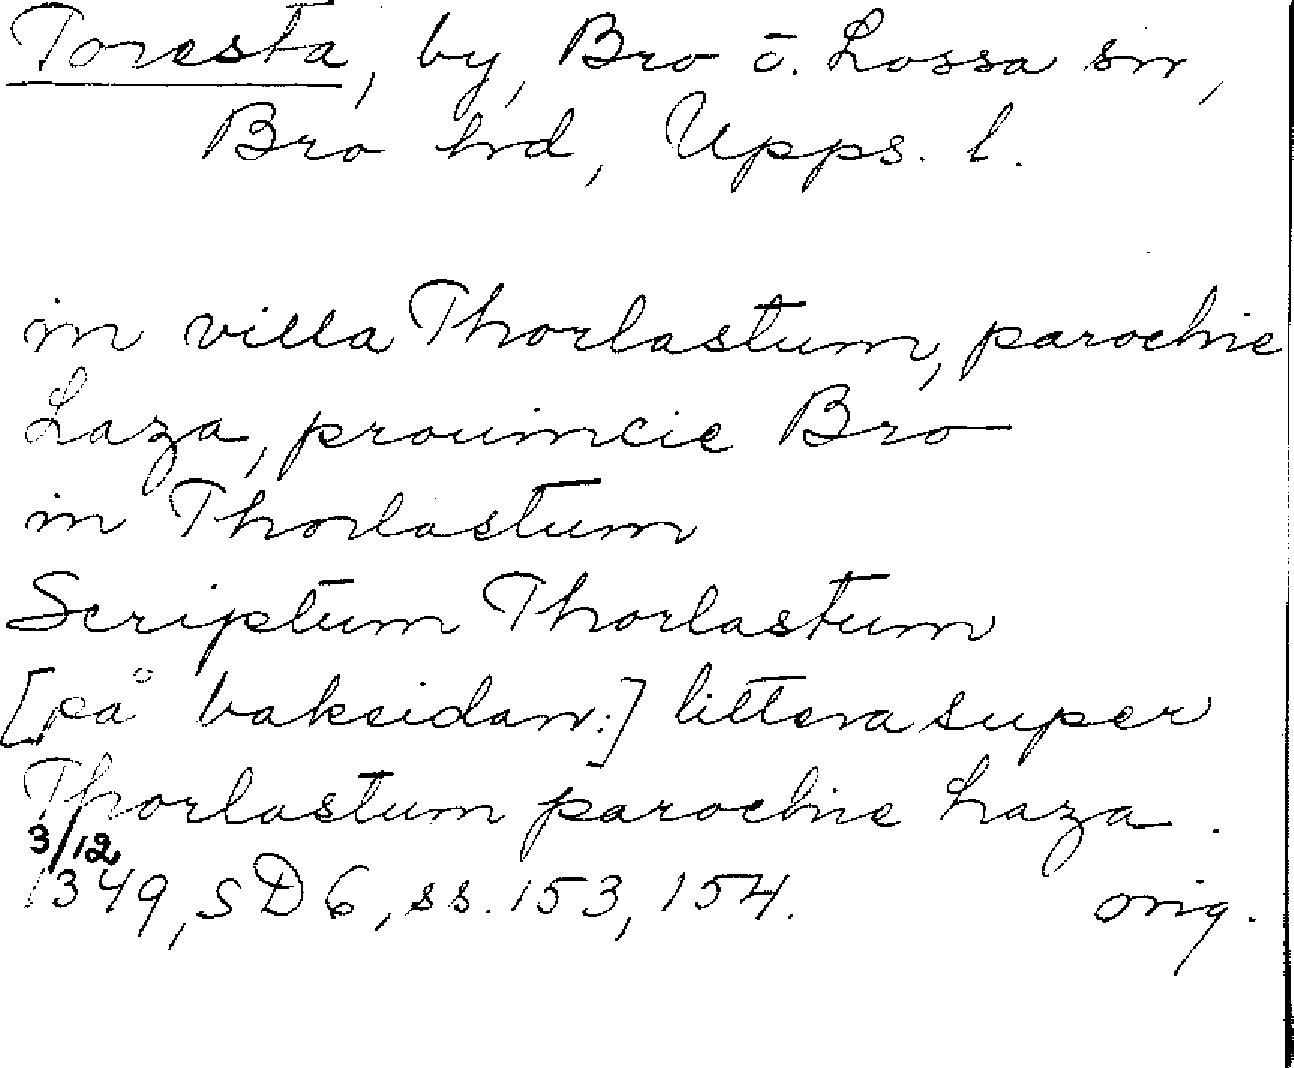 Toresta, by, Bro o. Lossa sn,
Bro hd, Upps. l.
in villa Thorlastum, parochie
Laza, prouincie Bro
in Thorlastum
Scriptum Thorlastum
[på baksidan:] littera super
Thorlastum parochie Laza.
3/12
1349, SD 6, ss. 153, 154. orig.